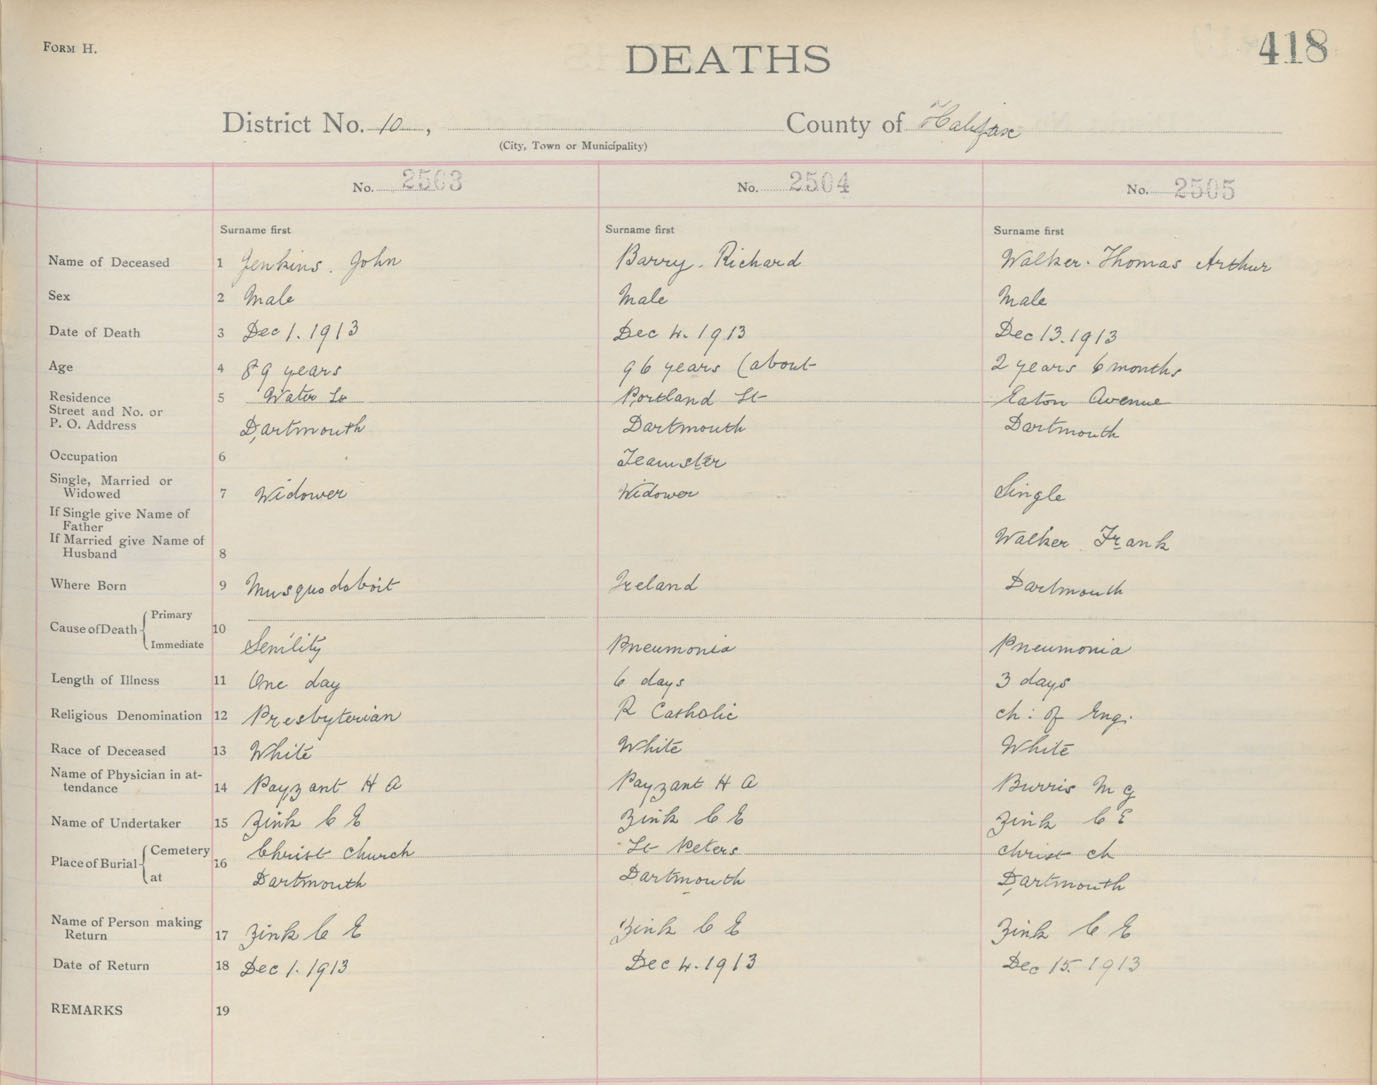 FORM H.
DEATHS
418
District No. 10, County of Halifax
(City, Town or Municipality)
No. 2503 No. 2504 No. 2505
Surname first Surname first Surname first
Name of Deceased 1 Jenkins. John Barry. Richard Walker. Thomas Arthur
Sex 2 Male Male Male
Date of Death 3 Dec 1. 1913 Dec 4. 1913 Dec 13. 1913
Age 4 89 years 96 years (about 2 years 6 months
Residence 5 Water St Portland St Eaton Avenue
Street and No. or
P. O. Address Dartmouth Dartmouth Dartmouth
Occupation 6 Teamster
Single, Married or
Widowed 7 Widower Widower Single
If Single give Name of
Father
If Married give Name of Walker Frank
Husband 8
Where Born 9 Musquodoboit Ireland Dartmouth
Primary
Cause of Death 10
Immediate Senility Pneumonia Pneumonia
Length of Illness 11 One day 6 days 3 days
Religious Denomination 12 Presbyterian R Catholic Ch: of Eng.
Race of Deceased 13 White White White
Name of Physician in at-
tendance 14 Payzant H A Payzant H A Burris M G
Name of Undertaker 15 Zink C E Zink C E Zink C E
Cemetery Christ Church St Peters Christ Ch
Place of Burial 16
at Dartmouth Dartmouth Dartmouth
Name of Person making
Return 17 Zink C E Zink C E Zink C E
Date of Return 18 Dec 1. 1913 Dec 4. 1913 Dec 15. 1913
REMARKS 19